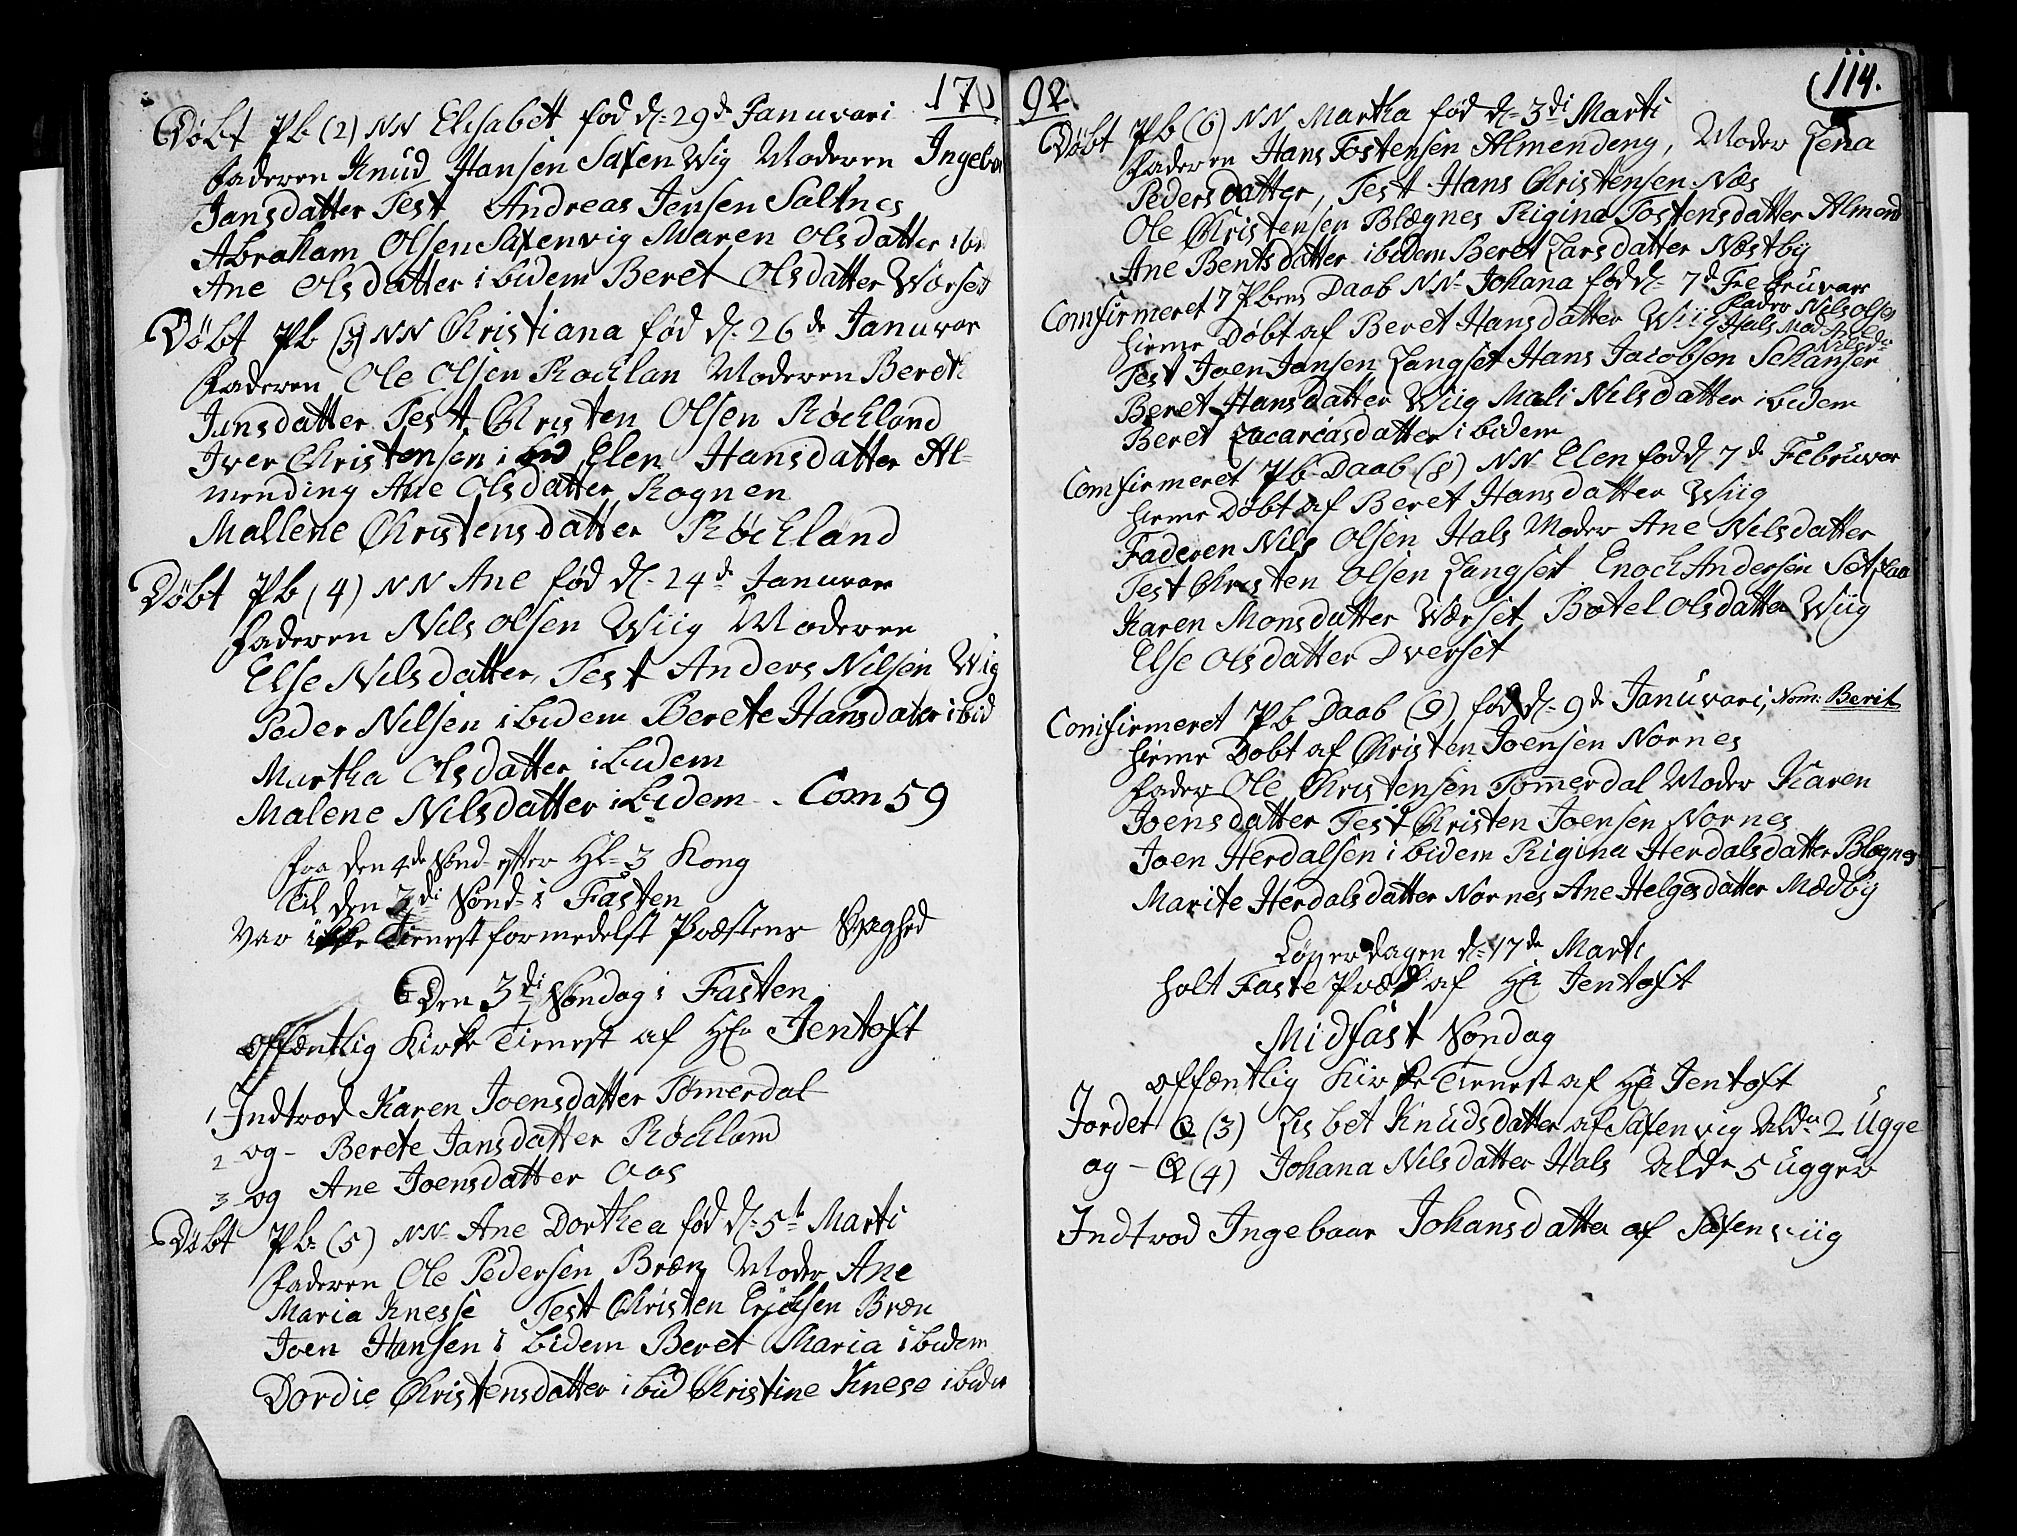 17
Døbt Pb (2) NN Elisabet fød d- 29de Januvari
Faderen Knud Hansen Saxen Wig Moderen Ingebor
Jansdatter Test Andreas Jensen Saltnes
Abraham Olsen Saxenvig Maren Olsdatter ibid
Ane Olsdatter ibidem Beret Olsdatter Wærset
Døbt Pb (3) NN Christiana fød d- 26de Januvar
Faderen Ole Olsen Rochlan Moderen Berethe
Jansdatter Test Christen Olsen Røchland
Iver Christensen ibid Elen Hansdatter Al-
mending Ane Olsdatter Rognen
Mallene Christensdatter Røchland
Døbt Pb (4) NN Ane fød d- 24de Januvar
Faderen Nils Olsen Wiig Moderen
Else Nilsdatter, Test Anders Nilsen Wig
Peder Nilsen ibidem Berete Hansdater ibid
Martha Olsdatter ibidem
Malene Nilsdatter ibidem - Com 59
Fra den 4de Sønd- efter Hl- 3 Kong
Til den 3di Sønd- i Fasten
Var ikke Tienest formedelst Præstens Svaghed
Den 3di Søndag i Fasten
Offentlig Kirke Tienest af Hr Jentoft
1 Indtrod Karen Joensdatter Tømerdal
2 - og - Berete Jansdatter Røchland
3 - og Ane Joensdatter Aas
Døbt Pb- (5) NN- Ane Dorthea fød d- 5t Marti
Faderen Ole Pedersen Bræn Moder Ane
Maria Knesse Test Christen Erichsen Bræn
Joen Hansen i bidem Beret Maria ibidem
Dordie Christensdatter ibid Christine Knese ibidem
92
114.
Døbt Pb (6) NN Martha fød d- 3di Marti
Faderen Hans Tostensen Almendeng, Moder Lena
Pedersdatter, Test Hans Christensen Næs
Ole Christensen Blægnes Rigina Tostensdatter Almend
Ane Bentsdatter ibidem Beret Larsdatter Næstby
Comfirmeret 7 Pbens Daab NN- Johana fød d- 7de Februvar
hieme Døbt af Beret Hansdatter Wiig Fader Nils Olsen
Hals Mod Ane
Nilsd-
Test Joen Jansen Langset Hans Jacobsen Schanser
Beret Hansdatter Wiig Mali Nilsdatter ibidem
Beret Zacariasdatter ibidem
Comfirmeret Pb- Daab (8) NN- Elen fød d 7de Februvar
hieme Døbt af Beret Hansdatter Wiig
Faderen Nils Olsen Hals Moder Ane Nilsdatter
Test Christen Olsen Langset Enoch Andersen
Karen Monsdatter Wærset, Botel Olsdatter Wiig
Else Olsdatter Dverset
Comfirmeret Pb Daab (9) fød d- 9de Januvari, Nom: Berit
hieme Døbt af Christen Joensen Nornes
Fader Ole Christensen Tømerdal Moder Karen
Joensdatter Test Christen Joensen Nornes
Joen Herdalsen ibidem Rigina Herdalsdatter Blægnes
Marite Herdalsdatter Nornes Ane Helgesdatter Mædby
Løyerdagen d- 17de Marti
holt Faste Præd af Hr Jentoft
Midfast Søndag
Offentlig Kirke Tienest af Hr Jentoft
Jordet Q (3) Lisbet Knudsdatter af Saxenvig Alder 2 Ugge
og - Q (4) Johana Nilsdatter Hals Alder 5 ugger
Indtrod Ingebaar Johansdatter af Saxenviig